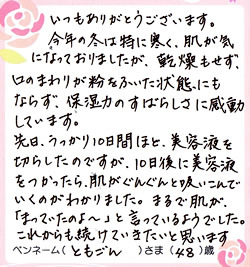 いつもありがとうございます。
今年の冬は特に寒く、肌が気
になっておりましたが、乾燥もせず、
口のまわりが粉をふいた状態にも
ならず、保湿力のすばらしさに感動
しています。
先日、うっかり10日間ほど、美容液を
切らしたのですが、10日後に美容液
をつかったら、肌がぐんぐんと吸いこんで
いくのがわかりました。まるで肌が、
「まっていたのよ〜」と言っているようでした。
これからも続けていきたいと思います
ペンネーム(ともごん)さま(48)歳